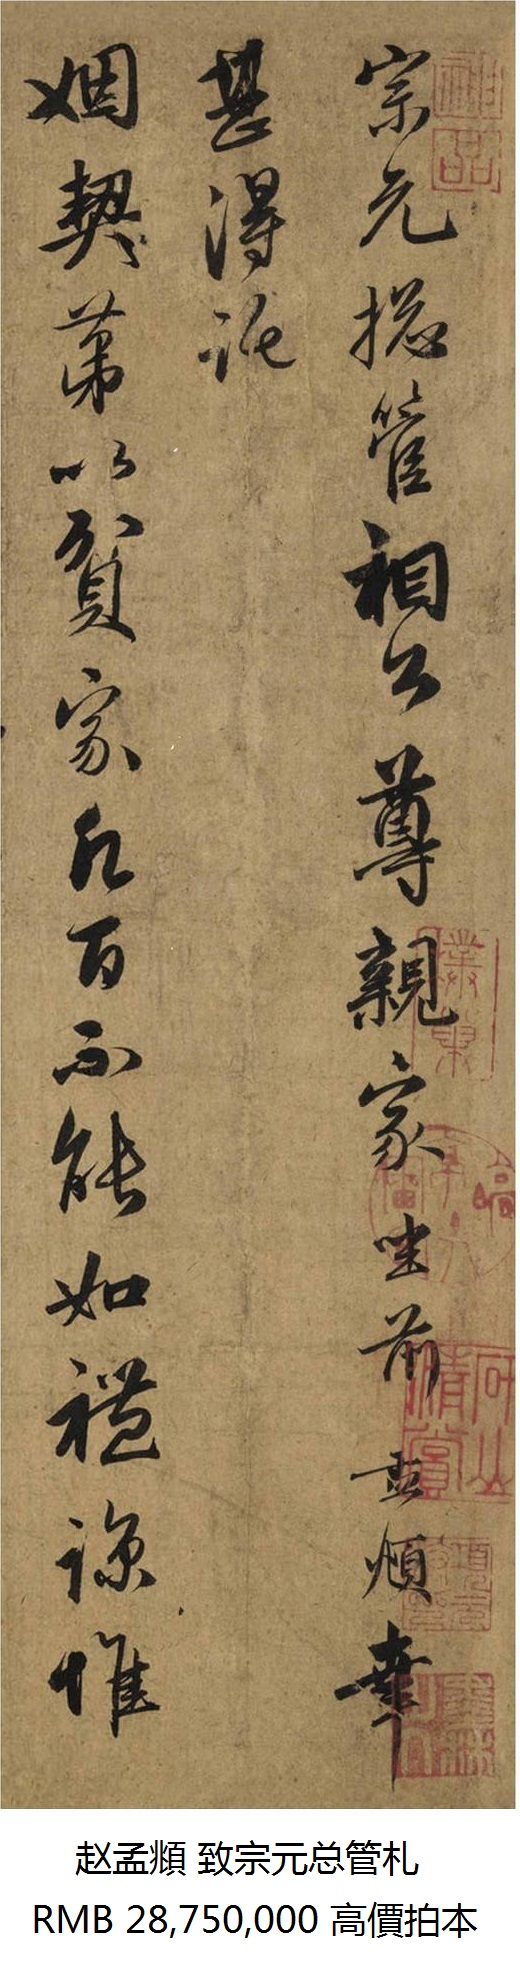 宗元揔管相公尊親家坐前孟頫幸
甚得託
姻契苐以貧家凡百不能如禮諒惟
赵孟頫 致宗元总管札
RMB 28,750,000 高價拍本